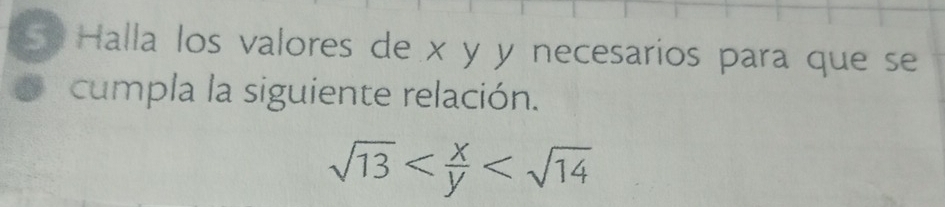 5 Halla los valores de x y y necesarios para que se
cumpla la siguiente relación.
√13 < x/y < √14